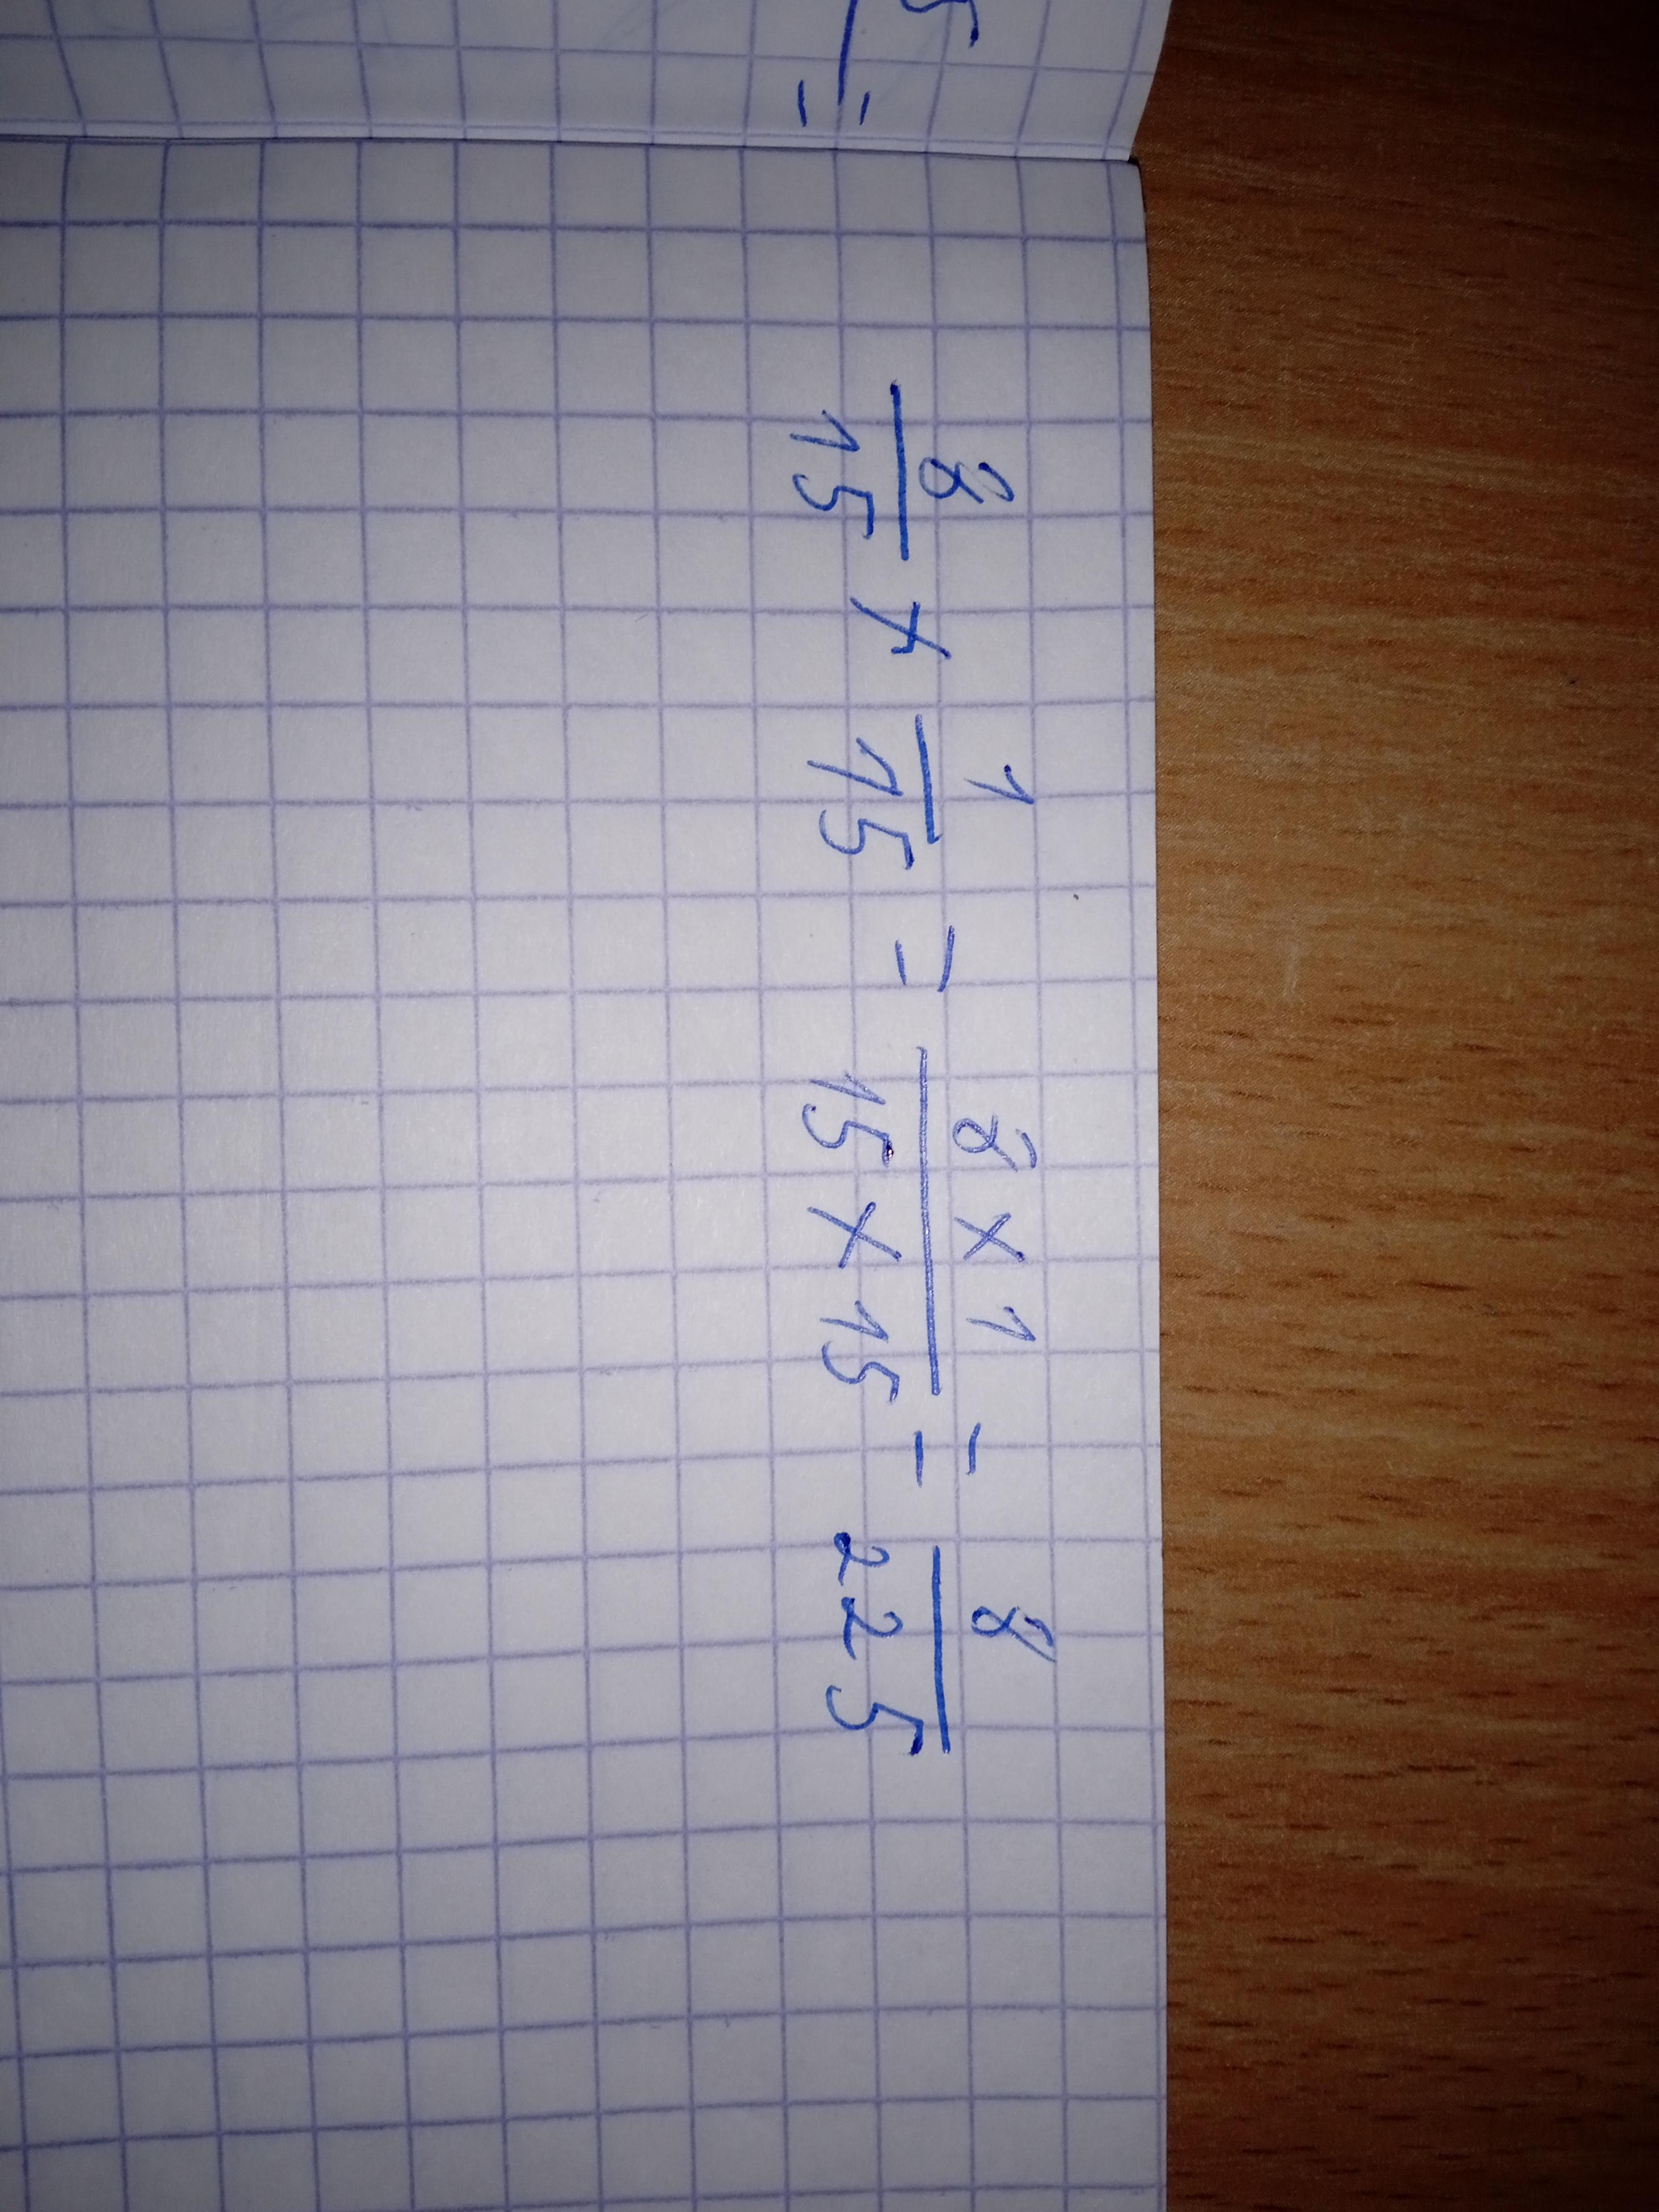 5 =
8/15 x 1/15 = 8 x 1/15 x 15 = 8/225